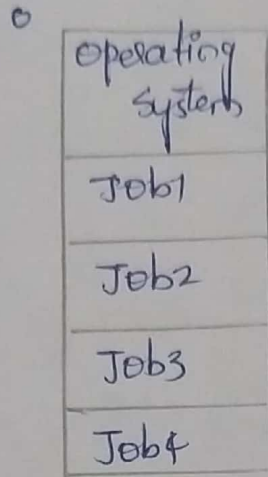 0
operating
system
Job1
Job2
Job3
Job4